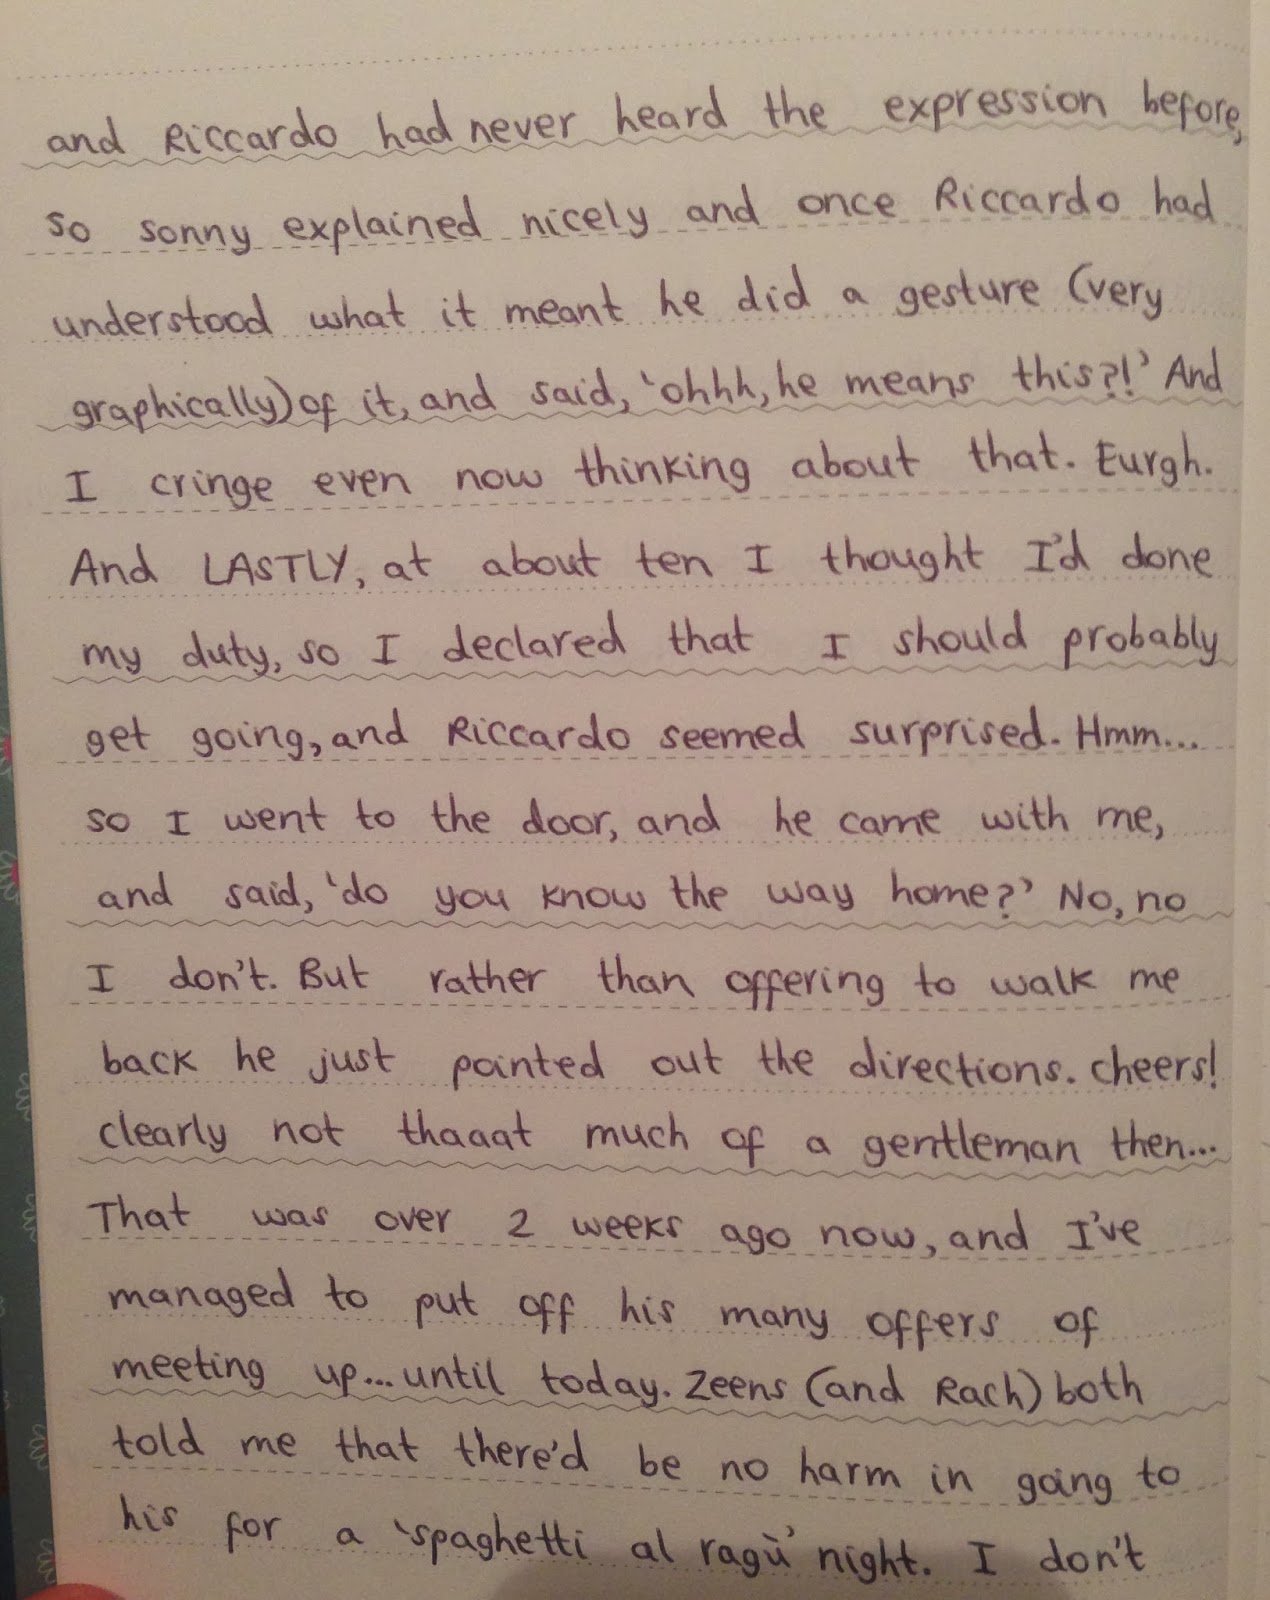 and Riccardo had never heard the expression before,
so sonny explained nicely and once Riccardo had
understood what it meant he did a gesture (very
graphically) of it, and said, 'ohhh, he means this?!' And
I cringe even now thinking about that. Eurgh.
And LASTLY, at about ten I thought I'd done
my duty, so I declared that I should probably
get going, and Riccardo seemed surprised. Hmm...
so I went to the door, and he came with me,
and said, 'do you know the way home?' No, no
I don't. But rather than offering to walk me
back he just pointed out the directions. cheers!
clearly not thaaat much of a gentleman then...
That was over 2 weeks ago now, and I've
managed to put off his many offers of
meeting up... until today. Zeens (and Rach) both
told me that there'd be no harm in going to
his for a 'spaghetti al ragù' night. I don't